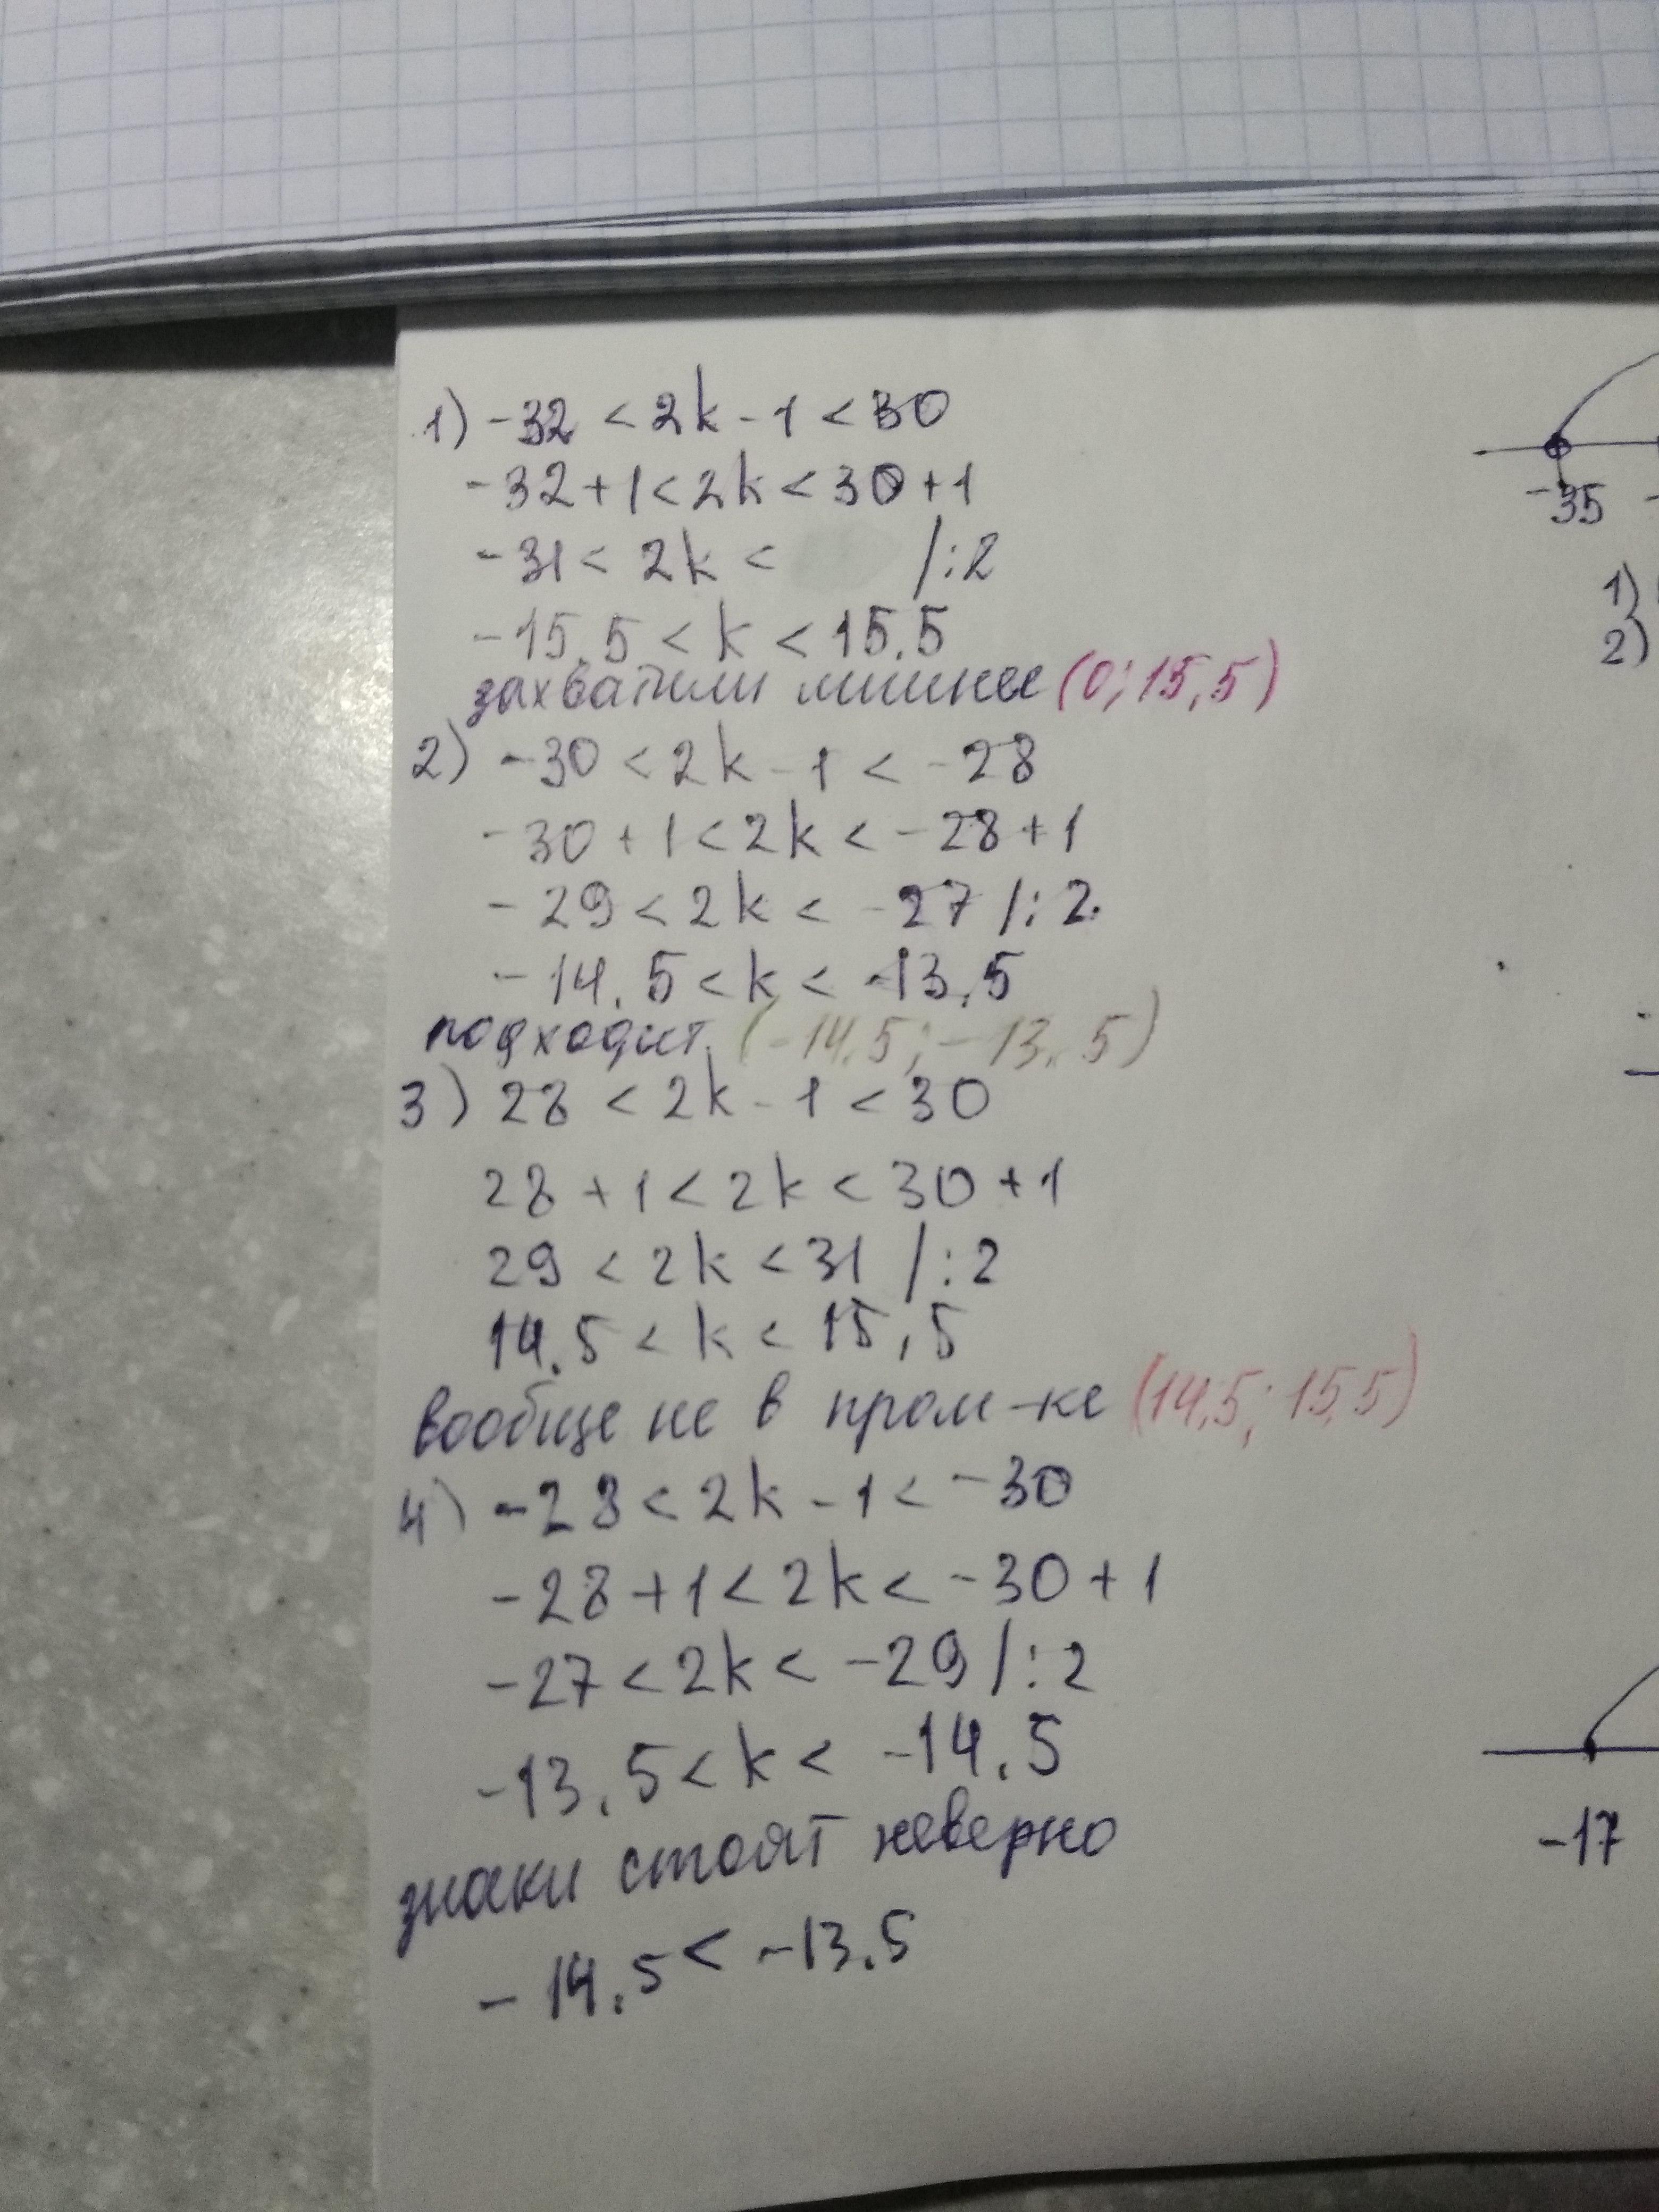 1) -32 < 2k - 1 < 30
-32 + 1 < 2k < 30 + 1
-31 < 2k < /:2
-15.5 < k < 15.5
захватили лишнее (0; 15,5)
2) -30 < 2k - 1 < -28
-30 + 1 < 2k < -28 + 1
-29 < 2k < -27 /:2
-14.5 < k < -13.5
подходит (-14.5; -13.5)
3) 28 < 2k - 1 < 30
28 + 1 < 2k < 30 + 1
29 < 2k < 31 /:2
14.5 < k < 15,5
вообще не в пром-ке (14.5; 15,5)
4) -28 < 2k - 1 < -30
-28 + 1 < 2k < -30 + 1
-27 < 2k < -29 /:2
-13.5 < k < -14.5
знаки стоят неверно
-14.5 < -13.5
-35
1)
2)
-17